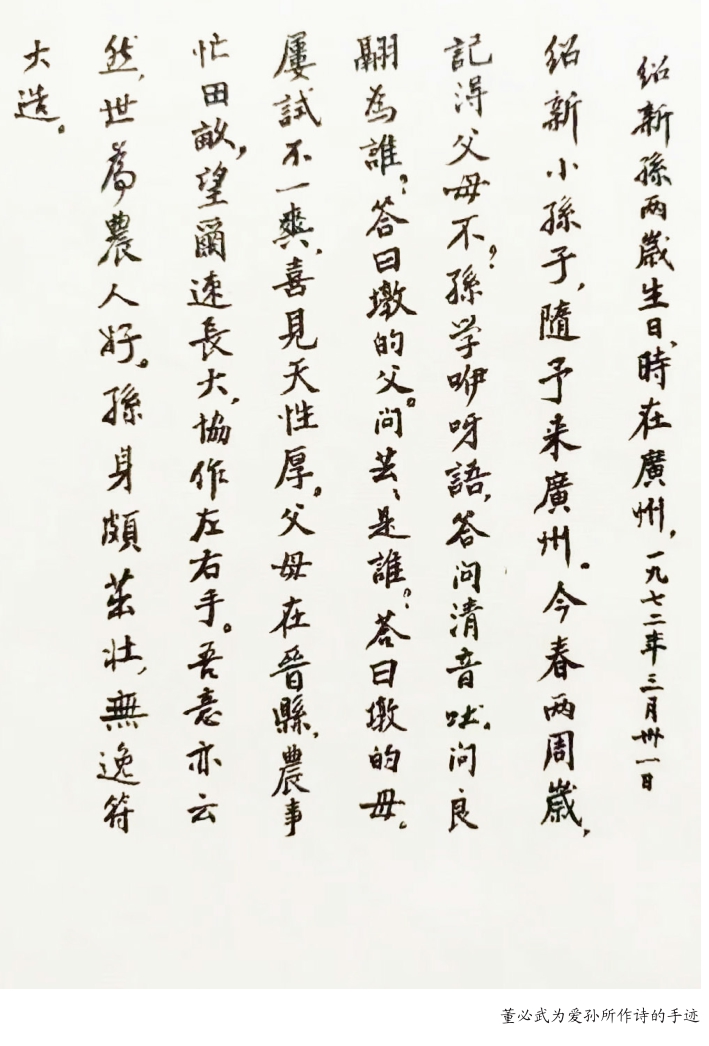 紹新孫两歲生日,時在廣州,一九七二年三月卅一日
紹新小孫子,隨予来廣州。今春两周歲,
記得父母不?孫学咿呀語,答问清音吐。问良
翮為誰?答曰墩的父。问芸、是誰?荅曰墩的母。
屢試不一爽,喜見天性厚。父母在晉縣,農事
忙田畝,望爾速長大,協作左右手。吾意亦云
然,世為農人好。孫身頗茁壯,無逸符
大造。
董必武为爱孙所作诗的手迹